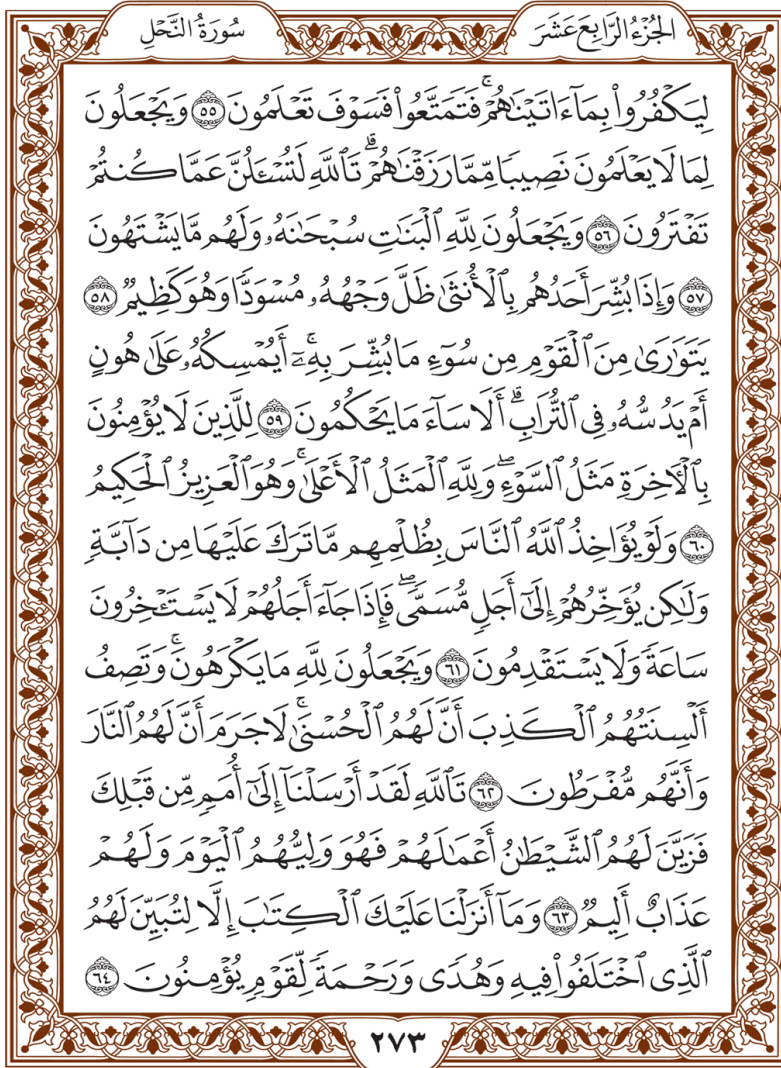 الجُزْءُ الرَّابِعَ عَشَرَ سُورَةُ النَّحْلِ
لِيَكْفُرُوا۟ بِمَآ ءَاتَيْنَٰهُمْ ۚ فَتَمَتَّعُوا۟ فَسَوْفَ تَعْلَمُونَ ٥٥ وَيَجْعَلُونَ
لِمَا لَا يَعْلَمُونَ نَصِيبًا مِّمَّا رَزَقْنَٰهُمْ ۗ تَٱللَّهِ لَتُسْـَٔلُنَّ عَمَّا كُنتُمْ
تَفْتَرُونَ ٥٦ وَيَجْعَلُونَ لِلَّهِ ٱلْبَنَٰتِ سُبْحَٰنَهُۥ وَلَهُم مَّا يَشْتَهُونَ
٥٧ وَإِذَا بُشِّرَ أَحَدُهُم بِٱلْأُنثَىٰ ظَلَّ وَجْهُهُۥ مُسْوَدًّا وَهُوَ كَظِيمٌ ٥٨
يَتَوَٰرَىٰ مِنَ ٱلْقَوْمِ مِن سُوٓءِ مَا بُشِّرَ بِهِۦٓ ۚ أَيُمْسِكُهُۥ عَلَىٰ هُونٍ
أَمْ يَدُسُّهُۥ فِى ٱلتُّرَابِ ۗ أَلَا سَآءَ مَا يَحْكُمُونَ ٥٩ لِلَّذِينَ لَا يُؤْمِنُونَ
بِٱلْءَاخِرَةِ مَثَلُ ٱلسَّوْءِ ۖ وَلِلَّهِ ٱلْمَثَلُ ٱلْأَعْلَىٰ ۚ وَهُوَ ٱلْعَزِيزُ ٱلْحَكِيمُ
٦٠ وَلَوْ يُؤَاخِذُ ٱللَّهُ ٱلنَّاسَ بِظُلْمِهِم مَّا تَرَكَ عَلَيْهَا مِن دَآبَّةٍ
وَلَٰكِن يُؤَخِّرُهُمْ إِلَىٰٓ أَجَلٍ مُّسَمًّى ۖ فَإِذَا جَآءَ أَجَلُهُمْ لَا يَسْتَـْٔخِرُونَ
سَاعَةً وَلَا يَسْتَقْدِمُونَ ٦١ وَيَجْعَلُونَ لِلَّهِ مَا يَكْرَهُونَ ۚ وَتَصِفُ
أَلْسِنَتُهُمُ ٱلْكَذِبَ أَنَّ لَهُمُ ٱلْحُسْنَىٰ ۚ لَا جَرَمَ أَنَّ لَهُمُ ٱلنَّارَ
وَأَنَّهُم مُّفْرَطُونَ ٦٢ تَٱللَّهِ لَقَدْ أَرْسَلْنَآ إِلَىٰٓ أُمَمٍ مِّن قَبْلِكَ
فَزَيَّنَ لَهُمُ ٱلشَّيْطَٰنُ أَعْمَٰلَهُمْ فَهُوَ وَلِيُّهُمُ ٱلْيَوْمَ وَلَهُمْ
عَذَابٌ أَلِيمٌ ٦٣ وَمَآ أَنزَلْنَا عَلَيْكَ ٱلْكِتَٰبَ إِلَّا لِتُبَيِّنَ لَهُمُ
ٱلَّذِى ٱخْتَلَفُوا۟ فِيهِ وَهُدًى وَرَحْمَةً لِّقَوْمٍ يُؤْمِنُونَ ٦٤
٢٧٣